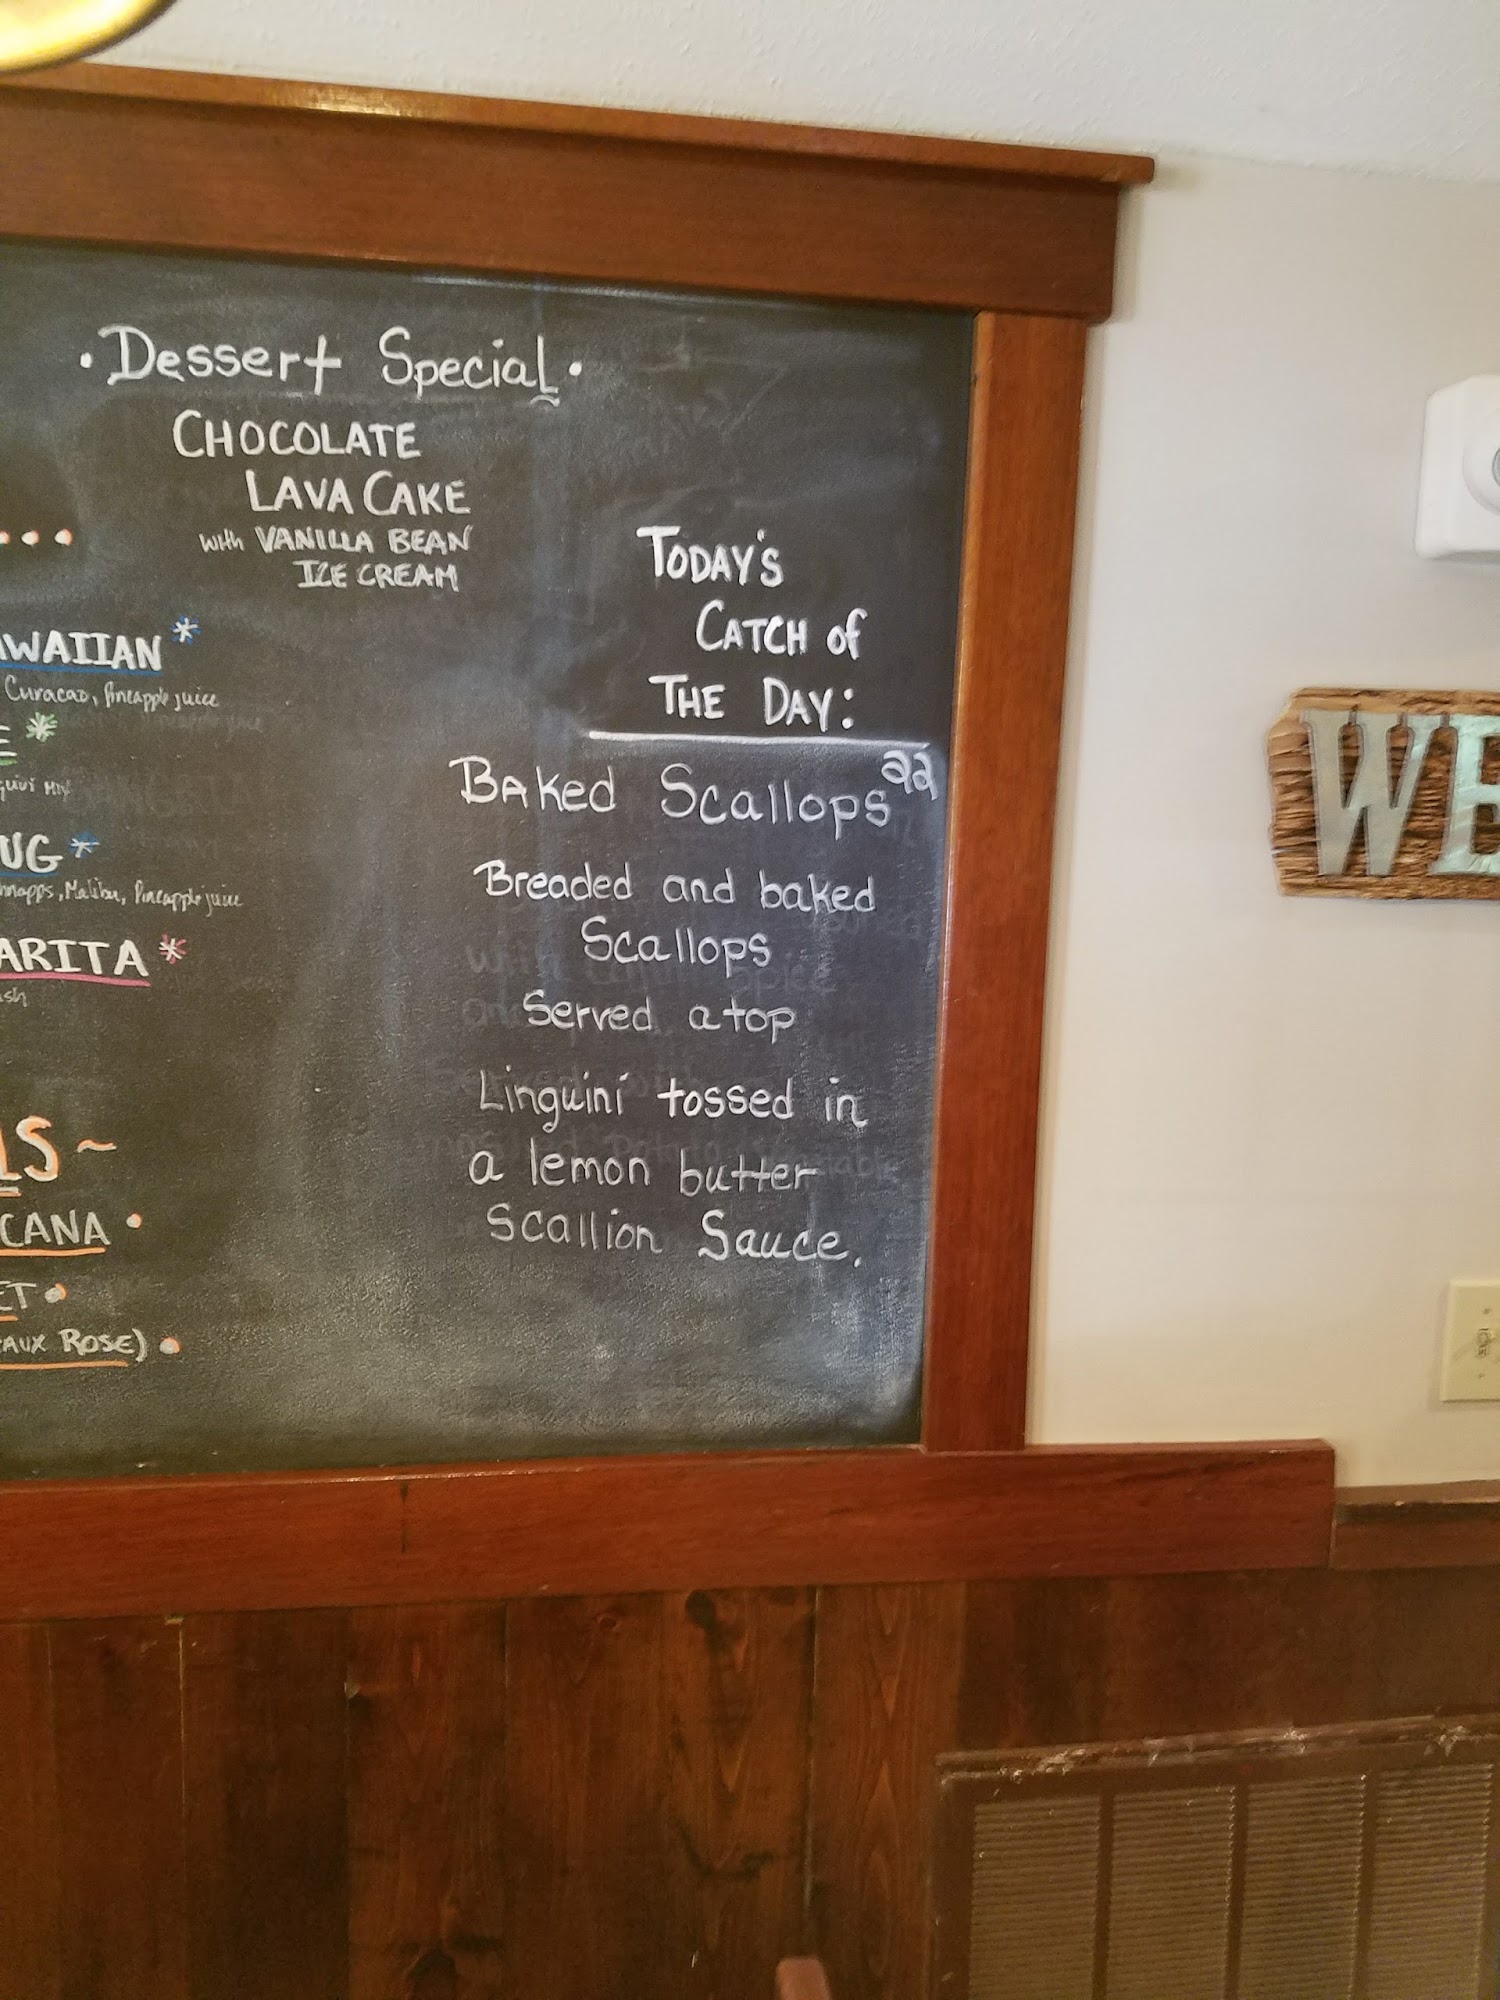 · Dessert Special ·
CHOCOLATE
LAVA CAKE
with VANILLA BEAN
ICE CREAM
AWAIIAN *
Curacao, Pineapple juice
E *
UG *
hnapps, Malibu, Pineapple juice
ARITA *
sh
LS ~
CANA •
ET •
EAUX ROSE) •
TODAY'S
CATCH of
THE DAY:
Baked Scallops 22
Breaded and baked
Scallops
Served atop
Linguini tossed in
a lemon butter
Scallion Sauce.
WE